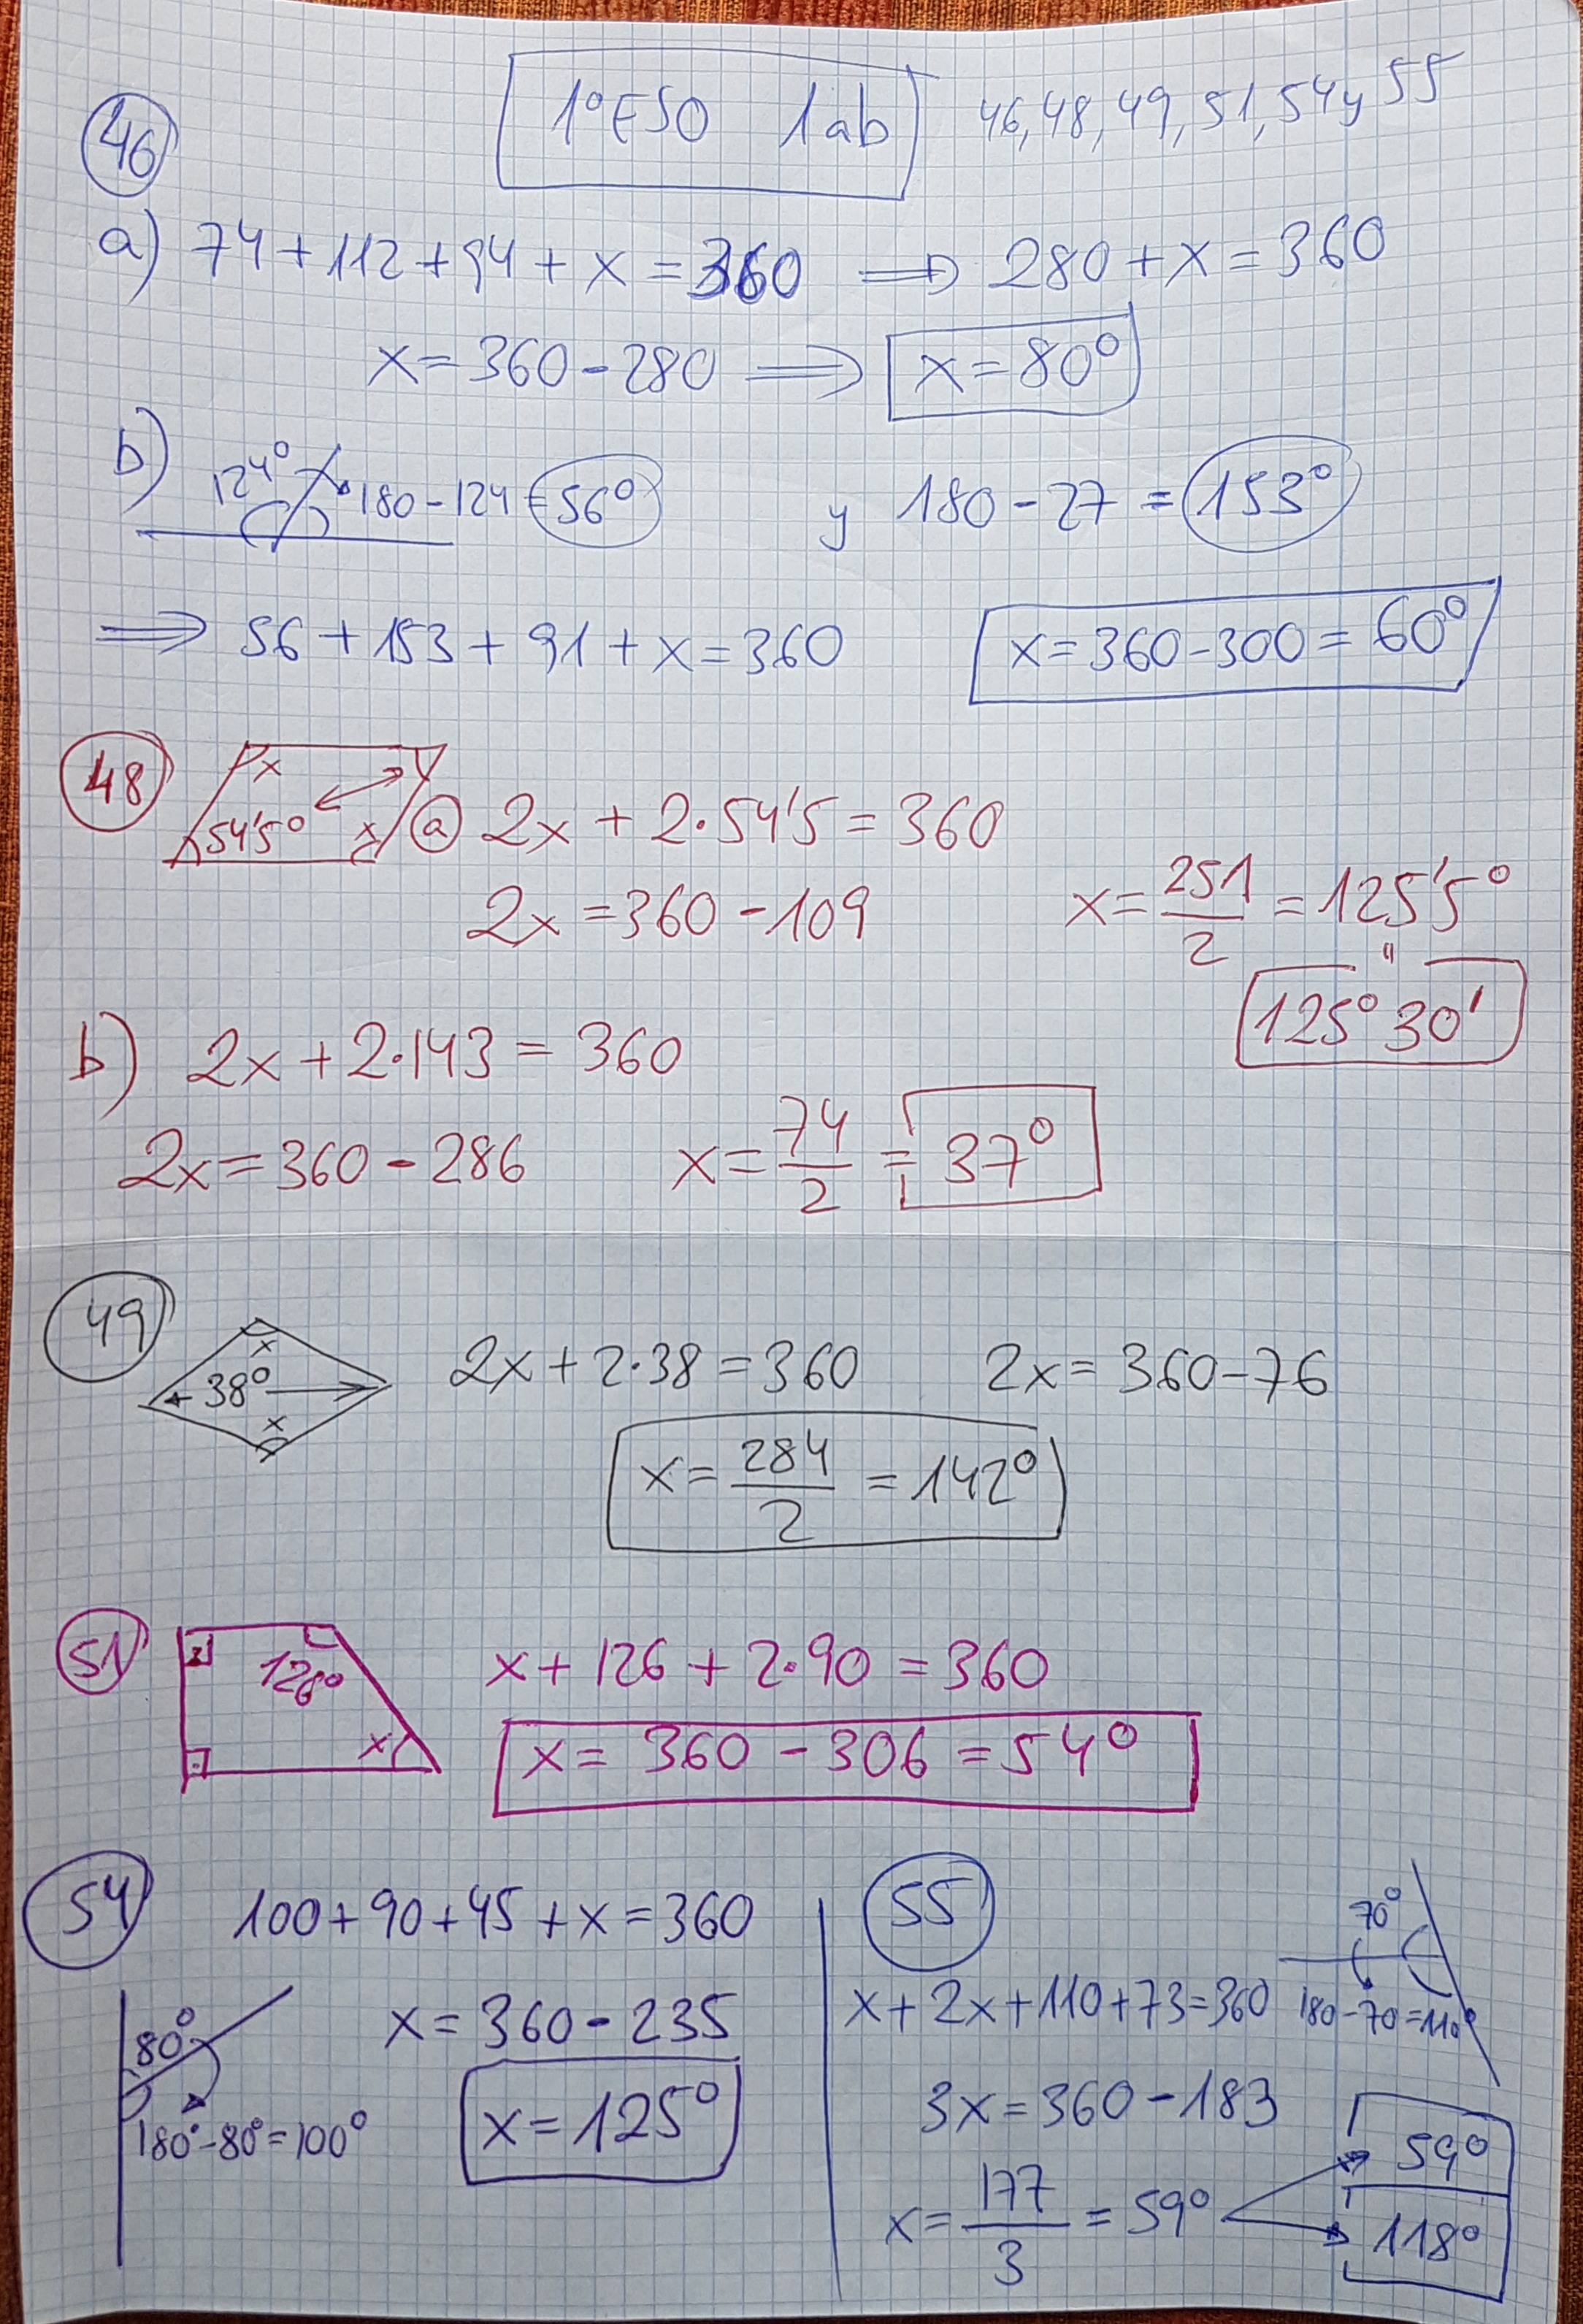 1º ESO 1ab 46, 48, 49, 51, 54 y 55
46
a) 74 + 112 + 94 + x = 360 ⟹ 280 + x = 360
x = 360 - 280 ⟹ x = 80º
b) 124º 180 - 124 = 56º y 180 - 27 = 153º
⟹ 56 + 153 + 91 + x = 360 x = 360 - 300 = 60º
48 x 54'5º x a 2x + 2·54'5 = 360
2x = 360 - 109 x = 251/2 = 125'5º
" 125º 30'
b) 2x + 2·143 = 360
2x = 360 - 286 x = 74/2 = 37º
49 x 38º x 2x + 2·38 = 360 2x = 360 - 76
x = 284/2 = 142º
51 126º x x + 126 + 2·90 = 360
x = 360 - 306 = 54º
54 100 + 90 + 45 + x = 360
80º x = 360 - 235
180º - 80º = 100º x = 125º
55 70º
x + 2x + 110 + 73 = 360 180 - 70 = 110º
3x = 360 - 183
x = 177/3 = 59º 59º
118º